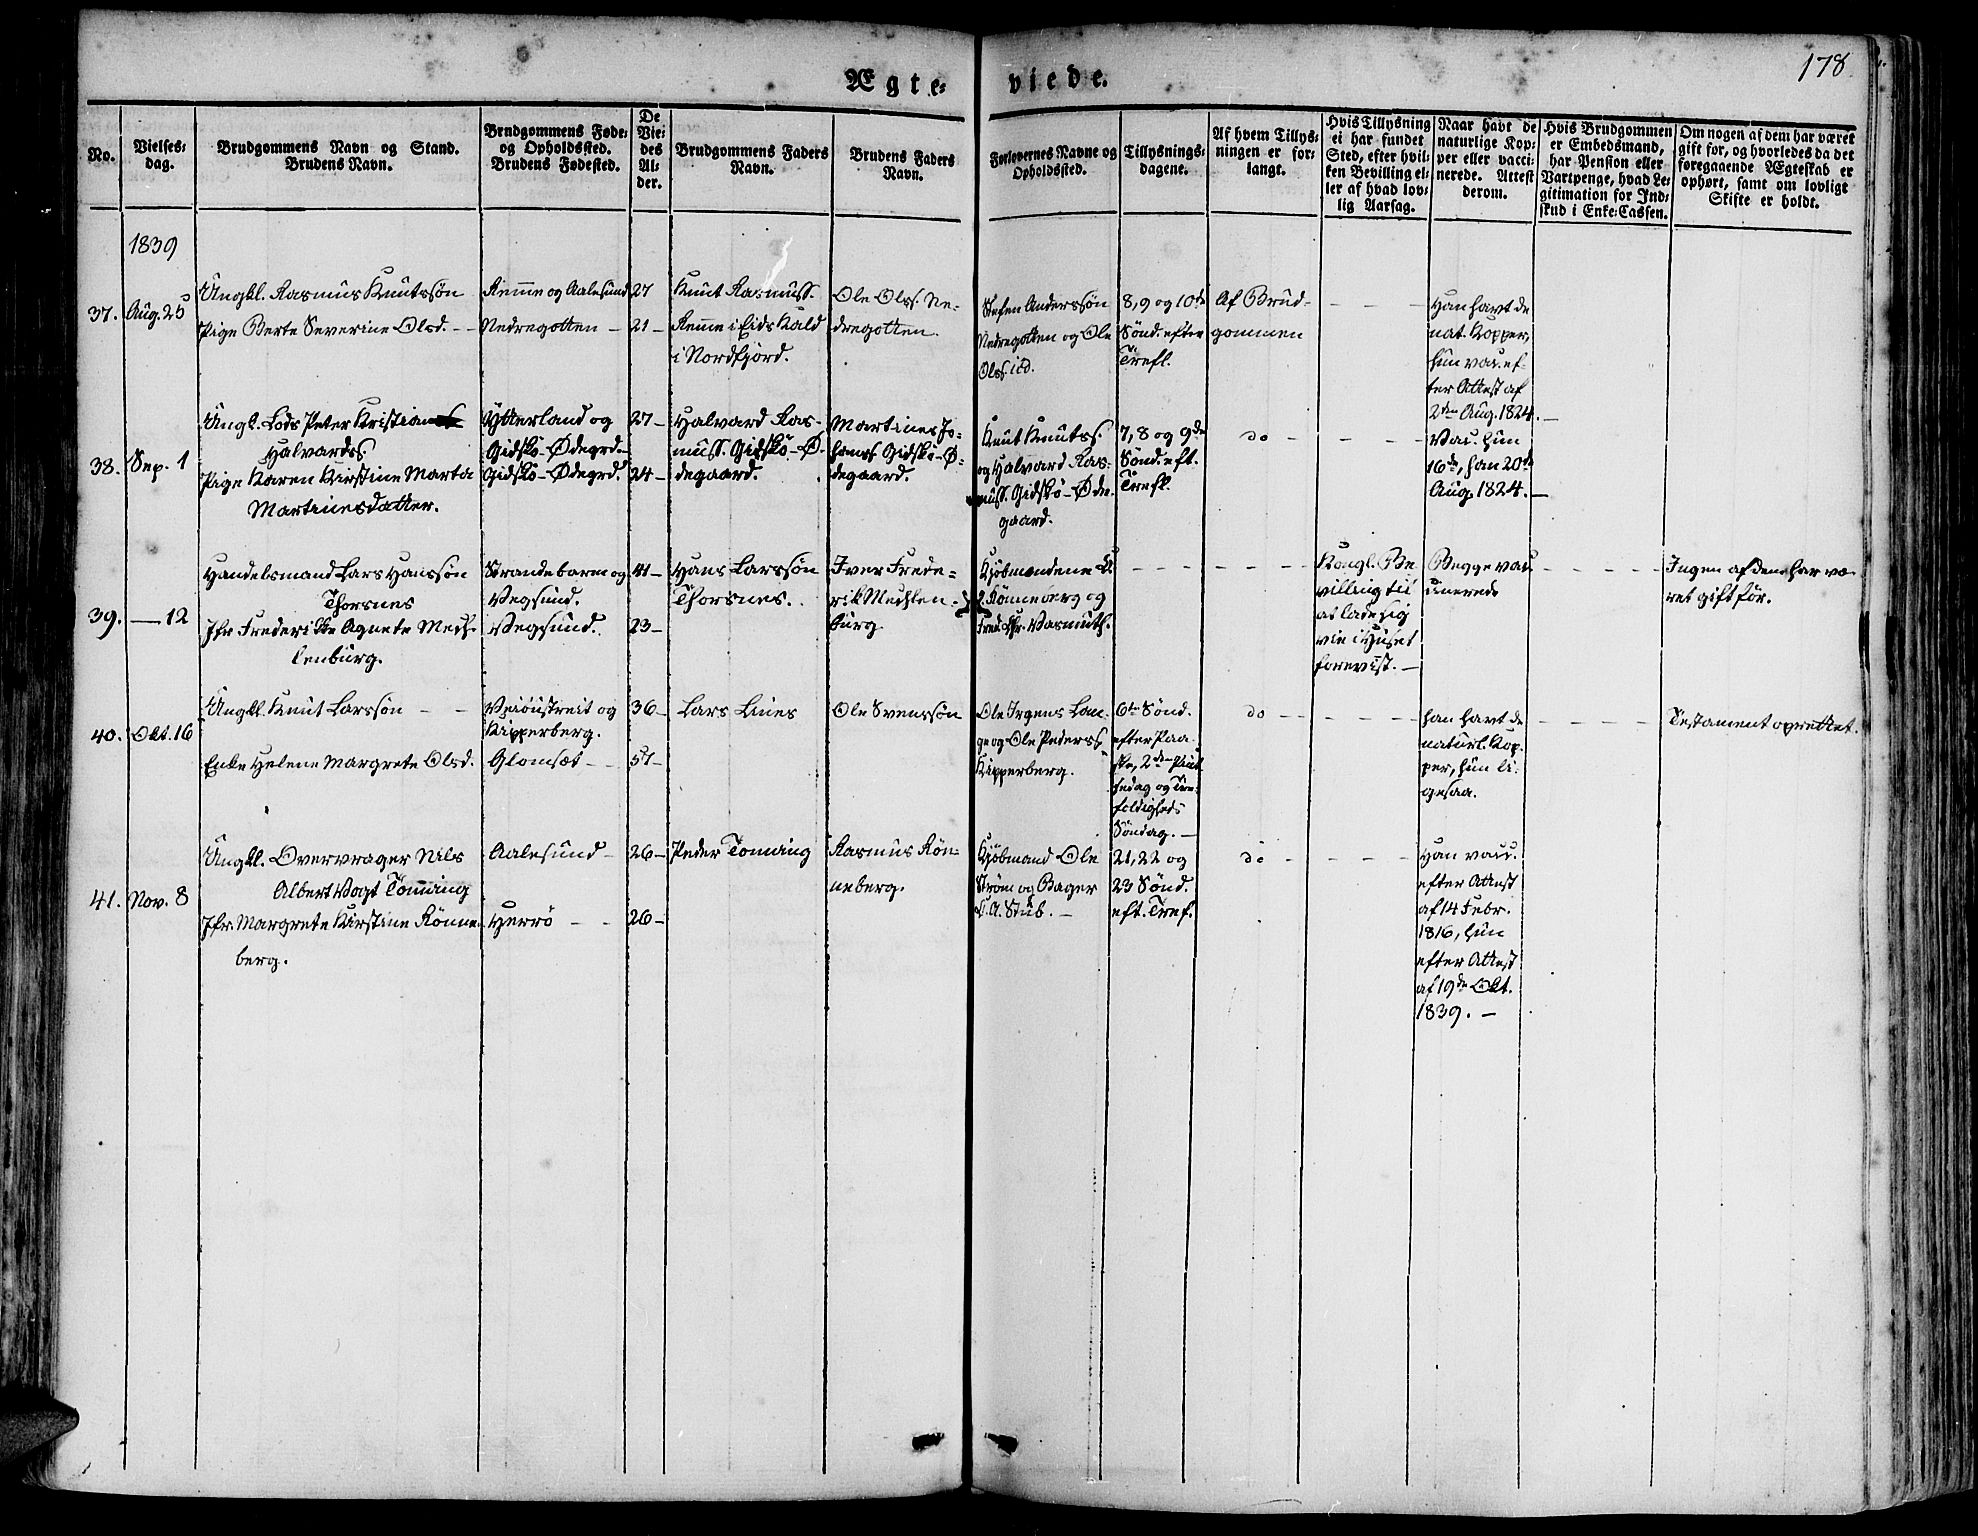 178
Ægte-viede.
No.
Vielses-
dag.
Brudgommens Navn og Stand.
Brudens Navn.
Brudgommens Føde-
og Opholdssted.
Brudens Fødested.
De
Vie-
des
Al-
der.
Brudgommens Faders
Navn.
Brudens Faders
Navn.
Forlovernes Navne og
Opholdssted.
Tillysnings-
dagene.
Af hvem Tillys-
ningen er for-
langt.
Hvis Tillysning
ei har fundet
Sted, efter hvil-
ken Bevilling el-
ler af hvad lov-
lig Aarsag.
Naar havt de
naturlige Kop-
per eller vacci-
nerede. Attest
derom.
Hvis Brudgommen
er Embedsmand,
har Pension eller
Vartpenge, hvad Le-
gitimation for Ind-
skud i Enke-Cassen.
Om nogen af dem har været
gift for, og hvorledes da det
foregaaende Ægteskab er
ophørt, samt om lovligt
Skifte er holdt.
1839
37.
Aug. 25
Ungkl. Rasmus Knutssøn
Pige Berte Severine Olsd. - -
Remme og Aalesund
Nedregotten -
27
21 -
Knut Rasmuss.
Remme i Eids Kald
i Nordfjord.
Ole Olss. Ne-
dregotten
Stefen Anderssøn
Nedregotten og Ole
Olss. ibd.
8, 9 og 10de
Sønd. efter
Trefl.
Af Brud-
gommen
- - -
Han havt de
nat. Kopper,
hun vac. ef-
ter Attest af
2den Aug. 1824. -
38.
Sep. 1
Ungl. Lods Peter Kristian
Halvards.
Pige Karen Kirstine Marta
Martinesdatter.
Ytterland og
Gidskø-Ødegrd-
Gidskø-Ødegrd.
27 -
24 -
Halvard Ras-
muss. Gidskø-Ø-
degaard.
Martines Jo-
hans. Gidskø-Ø-
degaard.
Knut Knutss.
og Halvard Ras-
muss. Gidskø-Øde-
gaard.
7, 8 og 9de
Sønd. eft.
Trefl.
do -
- - -
Vac. hun
16de, han 20de
Aug. 1824. -
39.
— 12
Handelsmand Lars Hanssøn
Thorsnes
Jfr. Frederikke Agnete Mech-
lenburg.
Strandebarm og
Vegsund.
Vegsund.
41 -
23 -
Hans Larssøn
Thorsnes.
Iver Frede-
rik Mechlen-
burg
Kjøbmændene
Rønneberg og
Fred. Chr. Vasmuth.
- - - - -
Kongl. Be-
villing til
at lade sig
vie i Huset
forevist. -
Begge vac-
cinerede
- - - -
Ingen af dem har væ-
ret gift før.
40.
Okt. 16
Ungkl. Knut Larssøn - -
Enke Helene Margrete Olsd.
og
Kipperberg.
Glomset - -
36 -
57 -
Lars Lines
Ole Svenssøn
Ole Irgens Lan-
ge og Ole Pederss.
Kipperberg.
6te Sønd.
efter Paa-
ske, 2den Pint-
sedag og Tre-
foldigheds
Søndag. -
do - -
- - -
han havt de
naturl. Kop-
per, hun li-
gesaa.
- - - -
Testament oprettet.
41.
Nov. 8
Ungkl. Overvrager Nils
Albert Vogt Tonning
Jfr. Margrete Kirstine Rønne-
berg.
Aalesund -
Herrø - -
26 -
26 -
Peder Tonning
Rasmus Røn-
neberg.
Kjøbmand Ole
Strøm og Bager
A. Stub. -
21, 22 og
23 Sønd.
eft. Tref.
do -
- - -
Han vacc.
efter Attest
af 14 Febr.
1816, hun
efter Attest
af 19de Okt.
1839. -